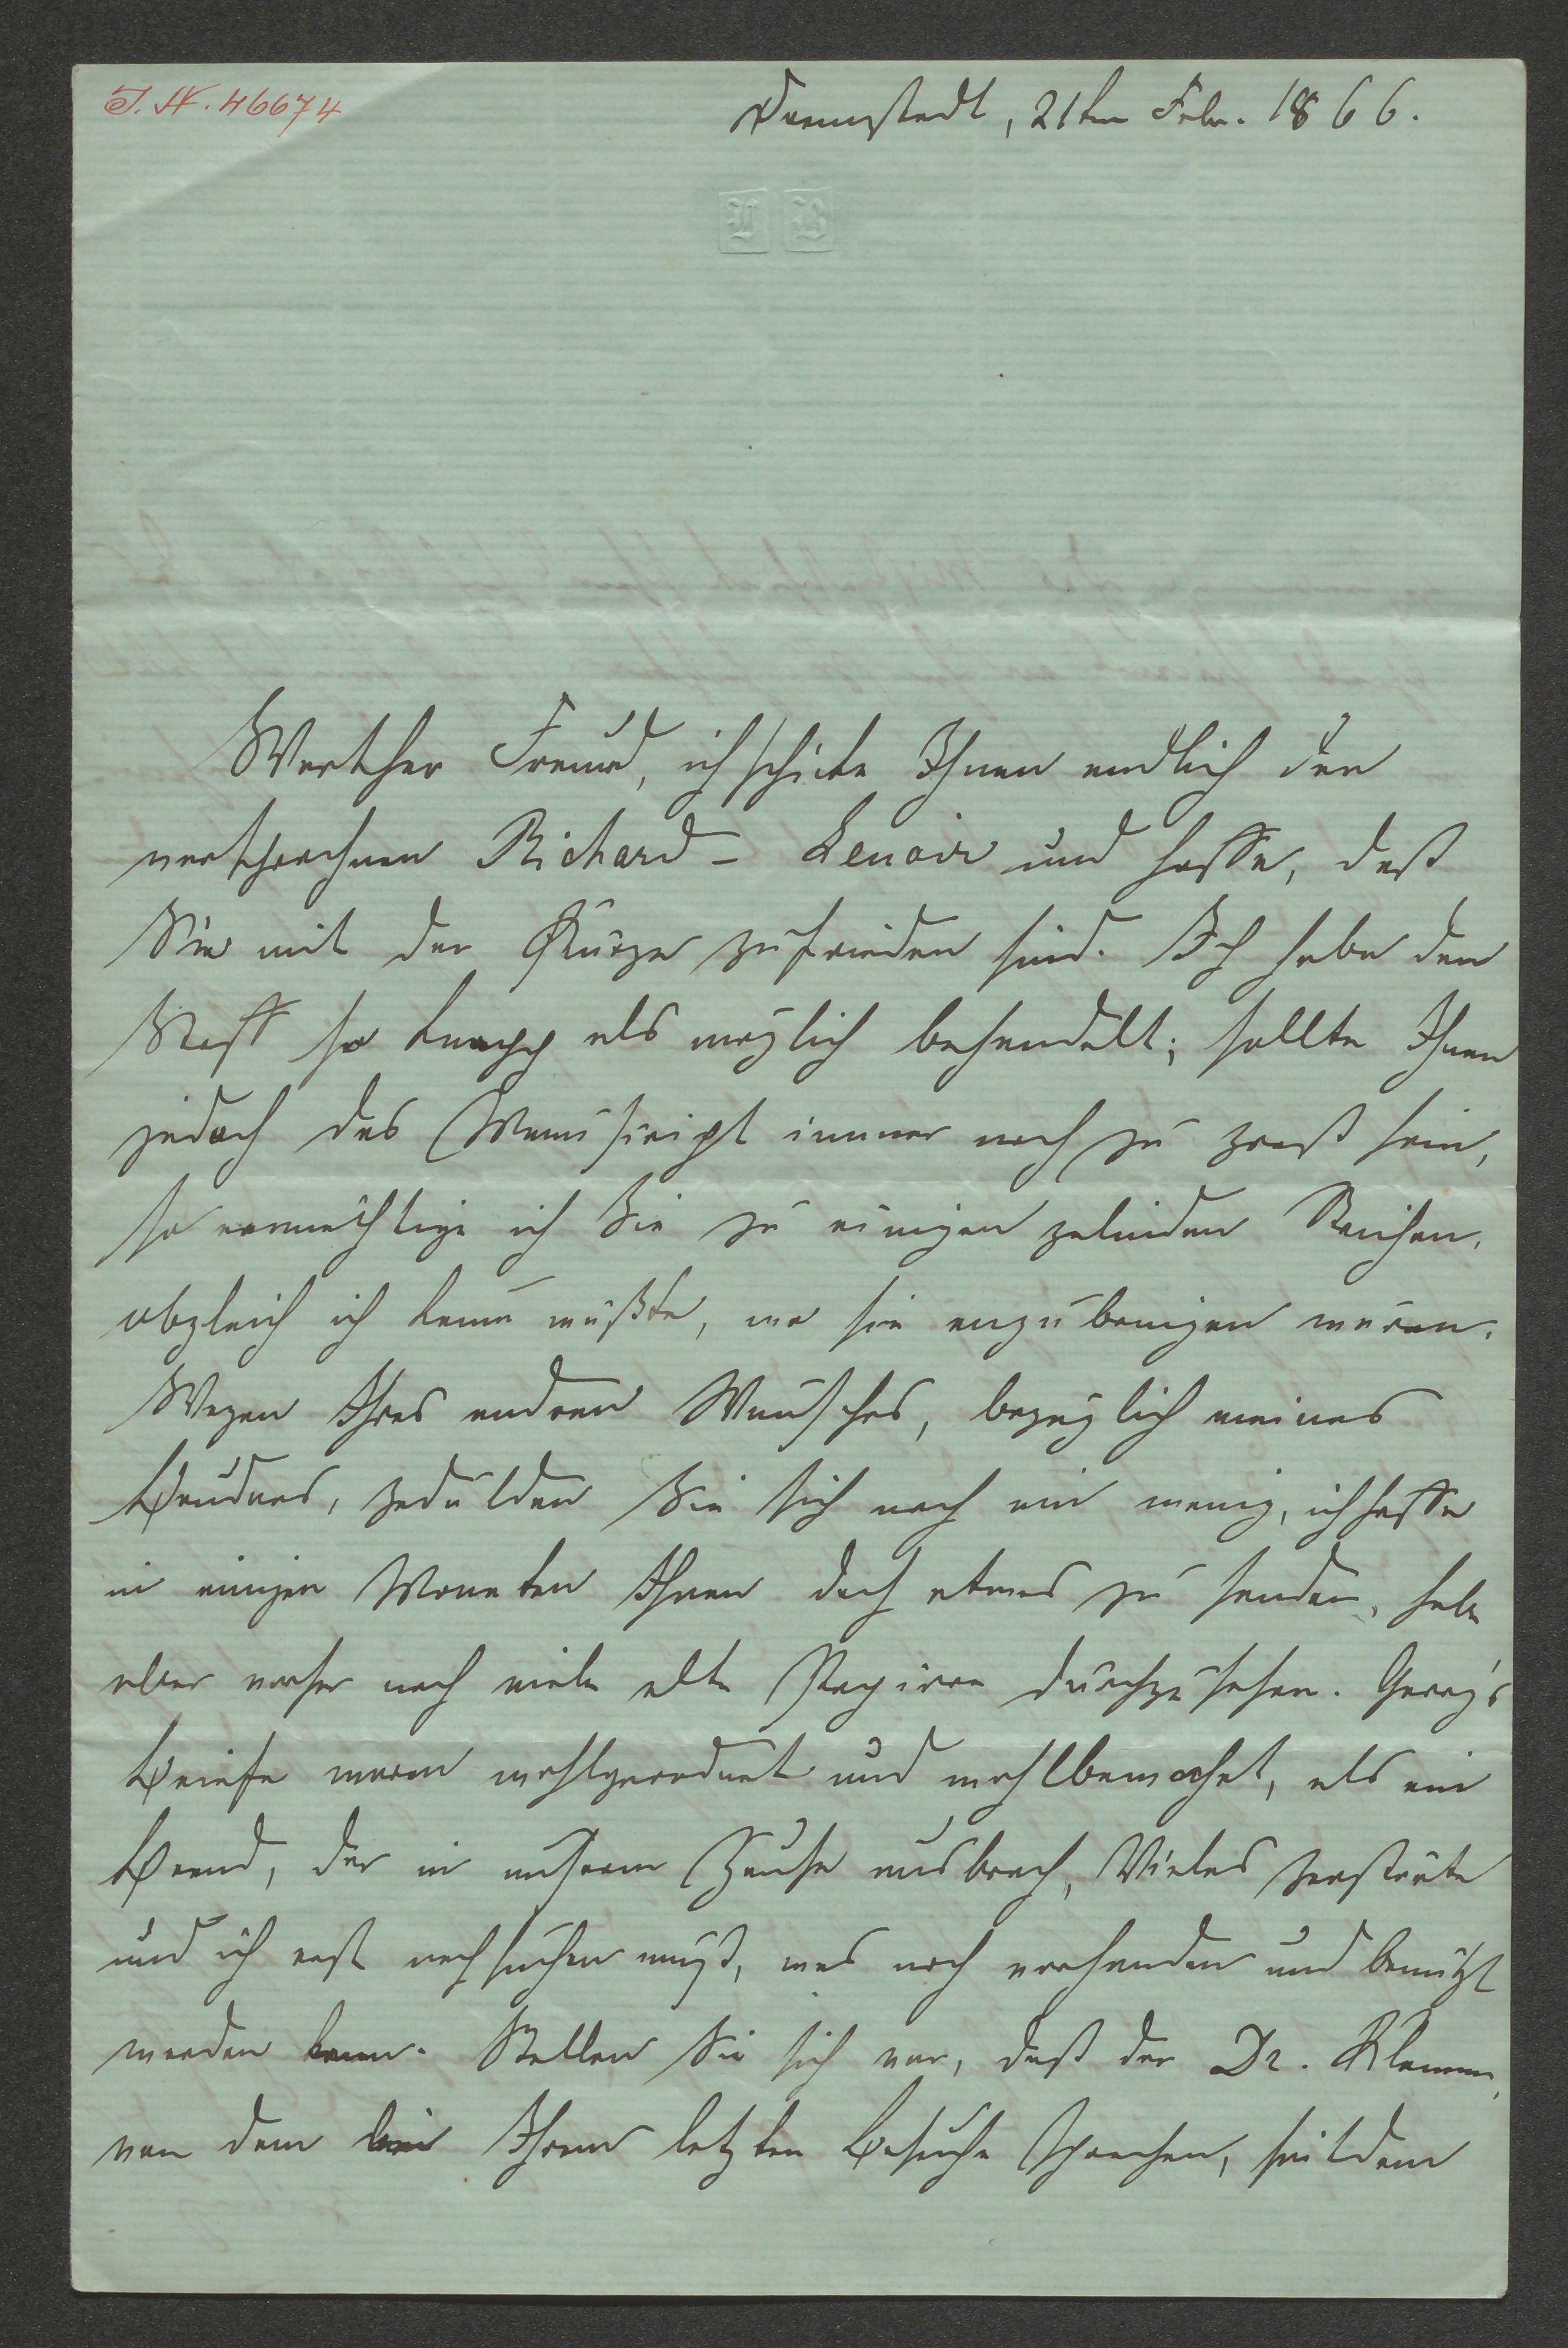 I. N. 46674
Darmstadt, 21ten Febr. 1866.
L B
Werther Freund, ich schicke Ihnen endlich den
versprochnen Richard-Lenoir und hoffe, daß
Sie mit der Kürze zufrieden sind. Ich habe den
Stoff so knapp als möglich behandelt; sollte Ihnen
jedoch das Manuscript immer noch zu groß sein,
so ermächtige ich Sie zu einigen gelinden Strichen,
obgleich ich kaum wüßte, wo sie anzubringen wären.
Wegen Ihres andren Wunsches, bezüglich meines
Bruders, gedulden Sie sich noch ein wenig, ich hoffe
in einigen Monaten Ihnen doch etwas zu senden, habe
aber vorher noch viele alte Papiere durchzusehen. Georg's
Briefe waren wohlgeordnet und wohlbewahrt, als ein
Brand, der in unserem Hause ausbrach, Vieles zerstörte
und ich erst nachsuchen muß, was noch vorhanden und benützt
werden kann. Stellen Sie sich vor, daß der Dr. Klemm,
von dem bei Ihrem letzten Besuche sprachen, seitdem